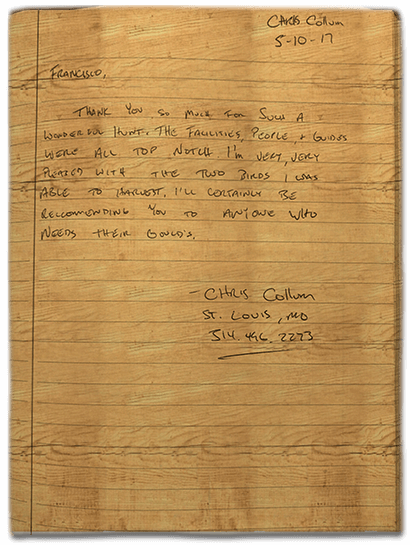 CHRIS Collum
5-10-17
FRANCISCO,
THANK YOU SO MUCH FOR SUCH A
WONDERFUL HUNT. THE FACILITIES, PEOPLE, + GUIDES
WERE ALL TOP NOTCH I'M VERY, VERY
PLEASED WITH THE TWO BIRDS I WAS
ABLE TO HARVEST. I'LL CERTAINLY BE
RECOMMENDING YOU TO ANYONE WHO
NEEDS THEIR GOULD'S.
- CHRIS Collum
ST. LOUIS, MO
314.496.2273